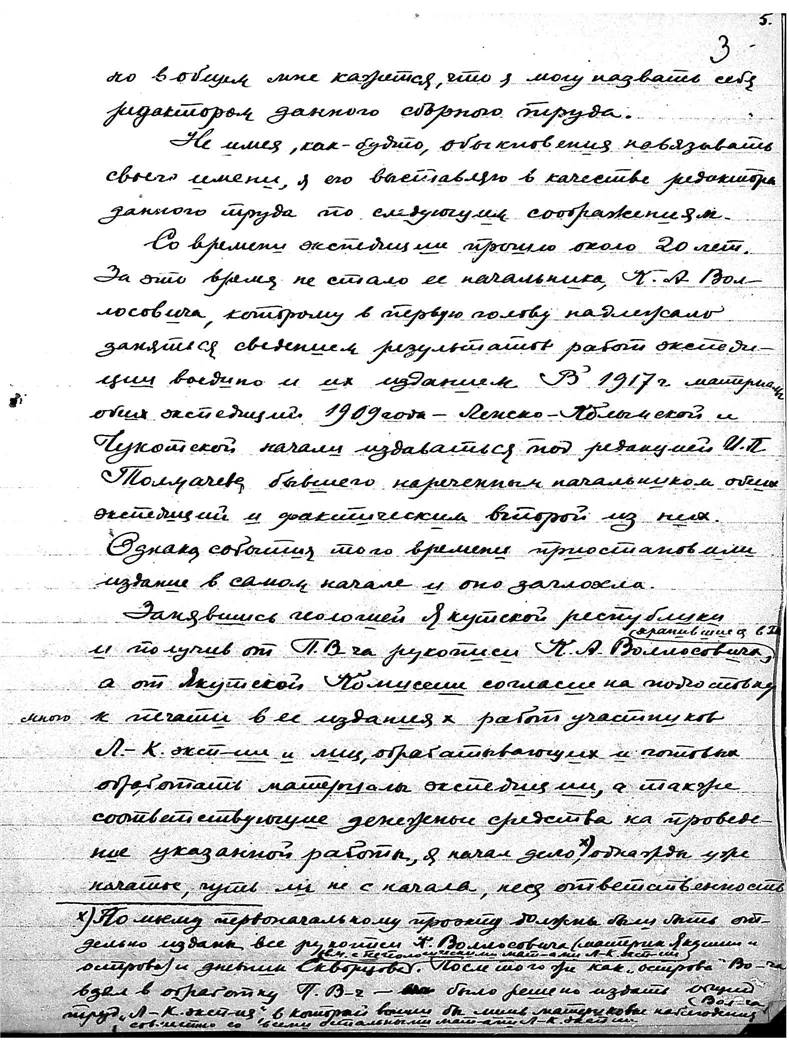 5.
3
но в общем мне кажется, что я могу назвать себя
редактором данного сборного труда.
Не имея, как-будто, обыкновения навязывать
своего имени, я его выставляю в качестве редактора
данного труда по следующим соображениям.
Со времени экспедиции прошло около 20 лет.
За это время не стало ее начальника, К. А. Вол-
лосовича, которому в первую голову надлежало
заняться сведением результатов работ экспеди-
ции воедино и их изданием. В 1917 г материалы
обеих экспедиций 1909 года – Ленско-Колымской и
Чукотской начали издаваться под редакцией И. П.
Толмачева, бывшего нареченным начальником обеих
экспедиций и фактическим второй из них.
Однако события того времени приостановили
издание в самом начале и оно заглохло.
Занявшись геологией Якутской республики
хранившиеся
и получив от П. В-ча рукописи К. А. Воллосовича,
а от Якутской Комиссии согласие на подготовку
много к печати в ее изданиях работ участников
Л-К. эксп-ии и лиц, обрабатывающих и готовых
обработать материалы экспедиции, а также
соответствующие денежные средства на проведе-
ние указанной работы, я начал дело x) однажды уже
начатое, чуть ли не с начала, неся ответственность
x) По моему первоначальному проэкту должны были быть от-
дельно изданы все рукописи К. Воллосовича (материк Якутии и
острова) и дневники Скворцова. После того же как "острова" Во-ча
взял в обработку П. В-ч – было решено издать общий
труд "Л-К. эксп-ия", в который вошли бы лишь материковые наблюдения Вол-ча
совместно со всеми остальными мат-ами Л-К. эксп-ии